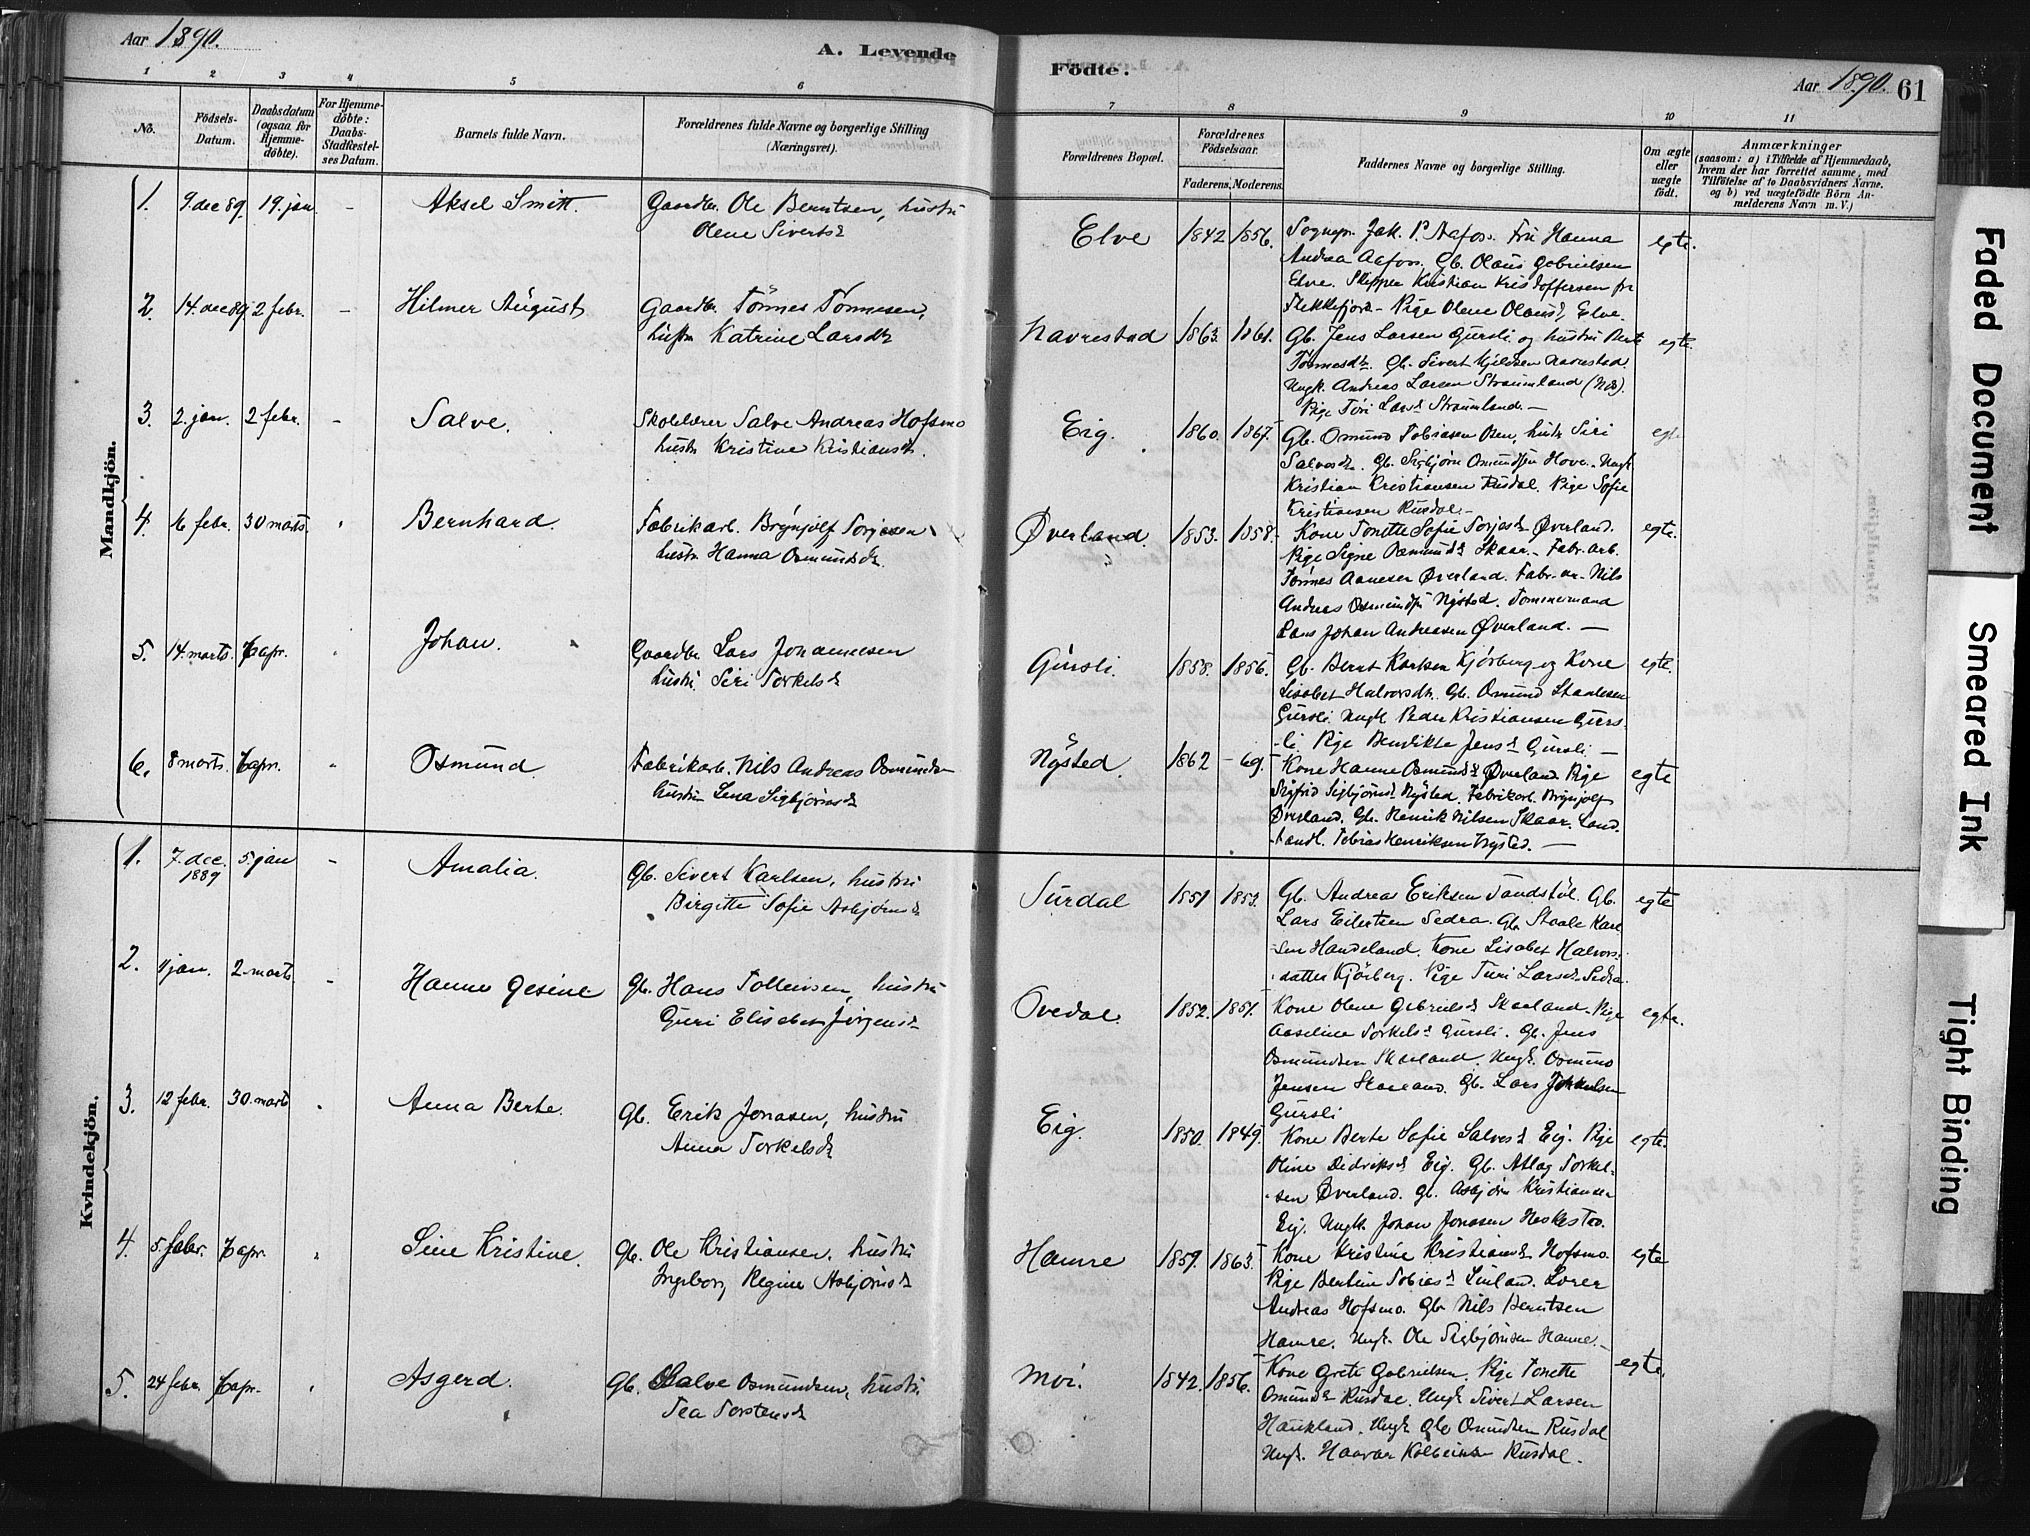 Aar 1890.
A. Levende
Födte.
Aar 1890. 61
1 2 3 4 5 6 7 8 9 10 11
No.
Födsels-
Datum.
Daabsdatum
(ogsaa for
Hjemme-
döbte).
For Hjemme-
döbte:
Daabs-
Stadfæstel-
ses Datum.
Barnets fulde Navn.
Forældrenes fulde Navne og borgerlige Stilling
(Næringsvei).
Forældrenes Bopæl.
Forældrenes
Födselsaar.
Faderens. Moderens.
Faddernes Navne og borgerlige Stilling.
Om ægte
eller
uægte
födt.
Anmærkninger
(saasom: a) i Tilfælde af Hjemmedaab,
hvem der har forrettet samme, med
Tilföielse af to Daabsvidners Navne,
og b) ved uægtefödte Börn An-
melderens Navn m. V.)
Mandkjön.
1. 9. dec 89. 19. jan. - Aksel Smitt. Gaardbr. Ole Berntsen, hustru
Olene Sivertsd.
Elve 1842 1856. Sognepr. Jak. P. Aafoss. Fru Hanna
Andrea Aafoss. Gb. Olaus Gabrielsen
Elve. Skipper Kristian Kristoffersen fr
Flekkefjord - Pige Olene Olausd. Elve.
egte.
2. 14. dec 89 2 febr. - Hilmer August Gaardbr. Tönnes Tönnesen,
hustru Katrine Larsdt.
Navrestad 1863. 1861. Gb. Jens Larsen Gursli og hustru Berte
Tönnesdt. Gb. Sivert Kjeldsen Navrestad.
Ungk. Andreas Larsen Straumland (Nes).
Pige Tori Larsd. Straumland. -
egte.
3. 2. jan. 2 febr. - Salve. Skolelærer Salve Andreas Hofsmo
hustr. Kristine Kristiansd.
Eig. 1860. 1867. Gb. Osmund Tobiasen Osen, hustr. Siri
Salvesdt. Gb. Sigbjørn Osmundsen Hove. Ungk
Kristian Kristiansen Rusdal. Pige Sofie
Kristiansen Rusdal. -
egte
4. 6 febr. 30 marts. Bernhard. Fabrikarb. Brynjolf Torjesen
hustr. Hanna Osmundsd.
Øverland. 1853. 1858. Kone Tonette Sofie Torjesd Øverland.
Pige Signe Osmundsd Skaar. - Fabr. arb.
Tönnes Aanesen Øverland. Fabr. ar. Nils
Andreas Osmunds. Nysted. Tømmermand
Lars Johan Andreasen Øverland. -
egte.
5. 14. marts. 6 apr. Johan. Gaardbr Lars Johannesen
hustru Siri Torkelsd
Gursli. 1858. 1856. Gb. Bernt Karlsen Kjörberg og Kone
Lisabet Halvorsdt. Gb. Osmund Staalesen
Gursli. Ungk. Peder Kristiansen Gurs-
li. Pige Bendikte Jensd Gursli -
egte.
6. 8 marts. 6 apr. Osmund. Fabrikarb. Nils Andreas Osmunds.
hustru Lena Sigbjørnsd
Nysted. 1862 - 69. Kone Hanne Osmundsd Øverland Pige
Sigfrid Sigbjørnsd Nysted. Fabrikarb. Brynjolf
Øverland. Gb. Henrik Nilsen Skaar. Land.
handl. Tobias Henriksen Trysted. -
egte
Kvindekjön.
1. 7. dec. 1889 5. jan - Amalia. Gb. Sivert Karlsen, hustru
Birgitte Sofie Asbjørnsd
Surdal 1851 1853. Gb. Andreas Eriksen Tandstöl. Gb.
Lars Eilertsen Sedra. Gb. Staale Karl-
sen Handeland. Kone Lisabet Halvors-
datter Kjörberg. Pige Turi Larsd. Sedra.
egte
2. 4 jan. 2. marts. - Hanne Gesine Gb. Hans Tolleivsen, hustru
Guri Elisabet Jörgensd.
Ovedal. 1852. 1851. Kone Olene Gabrielsd Skaaland. Pige
Aaseline Torkelsd Gursli. Gb. Jens
Osmundsen Skaaland. Ungk. Osmund
Jensen Skaaland. Gb. Lars Johannesen
Gursli
egte.
3. 12 febr. 30 marts Anna Berte. Gb. Erik Jonasen, hustru
Anna Torkelsd
Eig. 1850. 1849. Kone Berte Sofie Salvesd Eig. Pige
Oline Didriksd Eig. Gb. Atlag Torkel-
sen Øverland. Gb. Asbjörn Kristiansen
Eig. Ungk. Johan Jonasen Heskestad.
egte
4. 5. febr. 6 apr. Sine Kristine. Gb. Ole Kristiansen, hustru
Ingeborg Regine Asbjørnsd
Hamre 1859. 1863. Kone Kristine Kristiansd Hofsmo.
Pige Bertine Tobiasd Linland. Lærer
Andreas Hofsmo. Gb Nils Berntsen
Hamre. Ungk. Ole Sigbjørnsen Hamre. -
egte
5. 24 febr. 6 apr. Asgerd. Gb. Salve Osmundsen, hustru
Tea Torstensd
Moi. 1842. 1856. Kone Grete Gabrielsen. Pige Tonette
Osmundsd Rusdal. Ungk Sivert Larsen
Haukland. Ungk. Ole Osmundsen Rusdal
Ungk. Haavar Kolbeinsen Rusdal.
egte.
Faded Document
Smeared Ink
Tight Binding